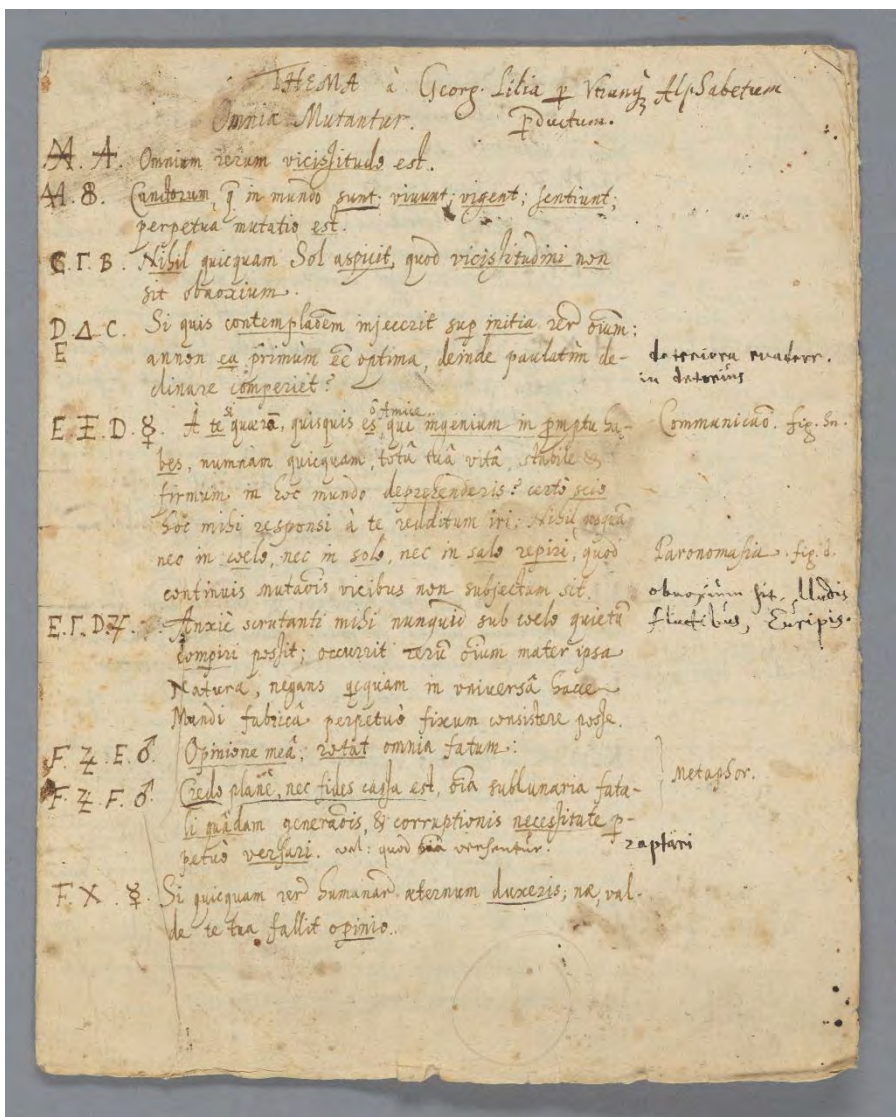 THEMA à Georg. Lilia p Vtrunq3 Alphabetum
Omnia Mutantur. pductum.
A. A. Omnium rerum vicissitudo est.
A. B. Cunctorum, q̄ in mundo sunt; viuunt; vigent; sentiunt;
perpetua mutatio est.
C. Γ. B. Nihil quicquam Sol aspicit, quod vicissitudini non
sit obnoxium.
D. Δ. C. Si quis contemplaōem injecerit sup initia rer̄ oīum:
E annon ea prīmùm eē optima, deinde paulatìm de- deteriora euadere.
clinare comperiet? in deterius
E. Ξ. D. ☿. À te si quærā, quisquis es ô Amice, qui ingenium in pmptu ha- Communicaō. fig. sn.
bes, numnam quicquam, totâ tuâ vitâ, stabile &
firmum in hoc mundo deprehenderis? certò scio
hoc mihi responsi à te redditum iri; Nihil usquā
nec in coelo, nec in solo, nec in salo repiri, quod Paronomasia. fig. d.
continuis mutaōis vicibus non subjectum sit. obnoxium sit.
fluctibus, Euripis.
E. Γ. D. ♃. Anxiè scrutanti mihi nunquid sub coelo quietū
compiri possit; occurrit rerū oīum mater ipsa
Natura, negans qcquam in vniversâ hacce
Mundi fabricâ perpetuò fixum consistere posse.
F. Z. E. ♂. Opinione meâ; rotat omnia fatum:
F. Z. F. ♂ Credo planè, nec fides cassa est, oīa sublunaria fata- Metaphor.
li quâdam generaōis, & corruptionis necessitate p-
petuò versari. vel: quod oīa versentur. raptari
F. X. ☿. Si quicquam rer̄ humanar̄ æternum duxeris; næ, val-
de te tua fallit opinio.